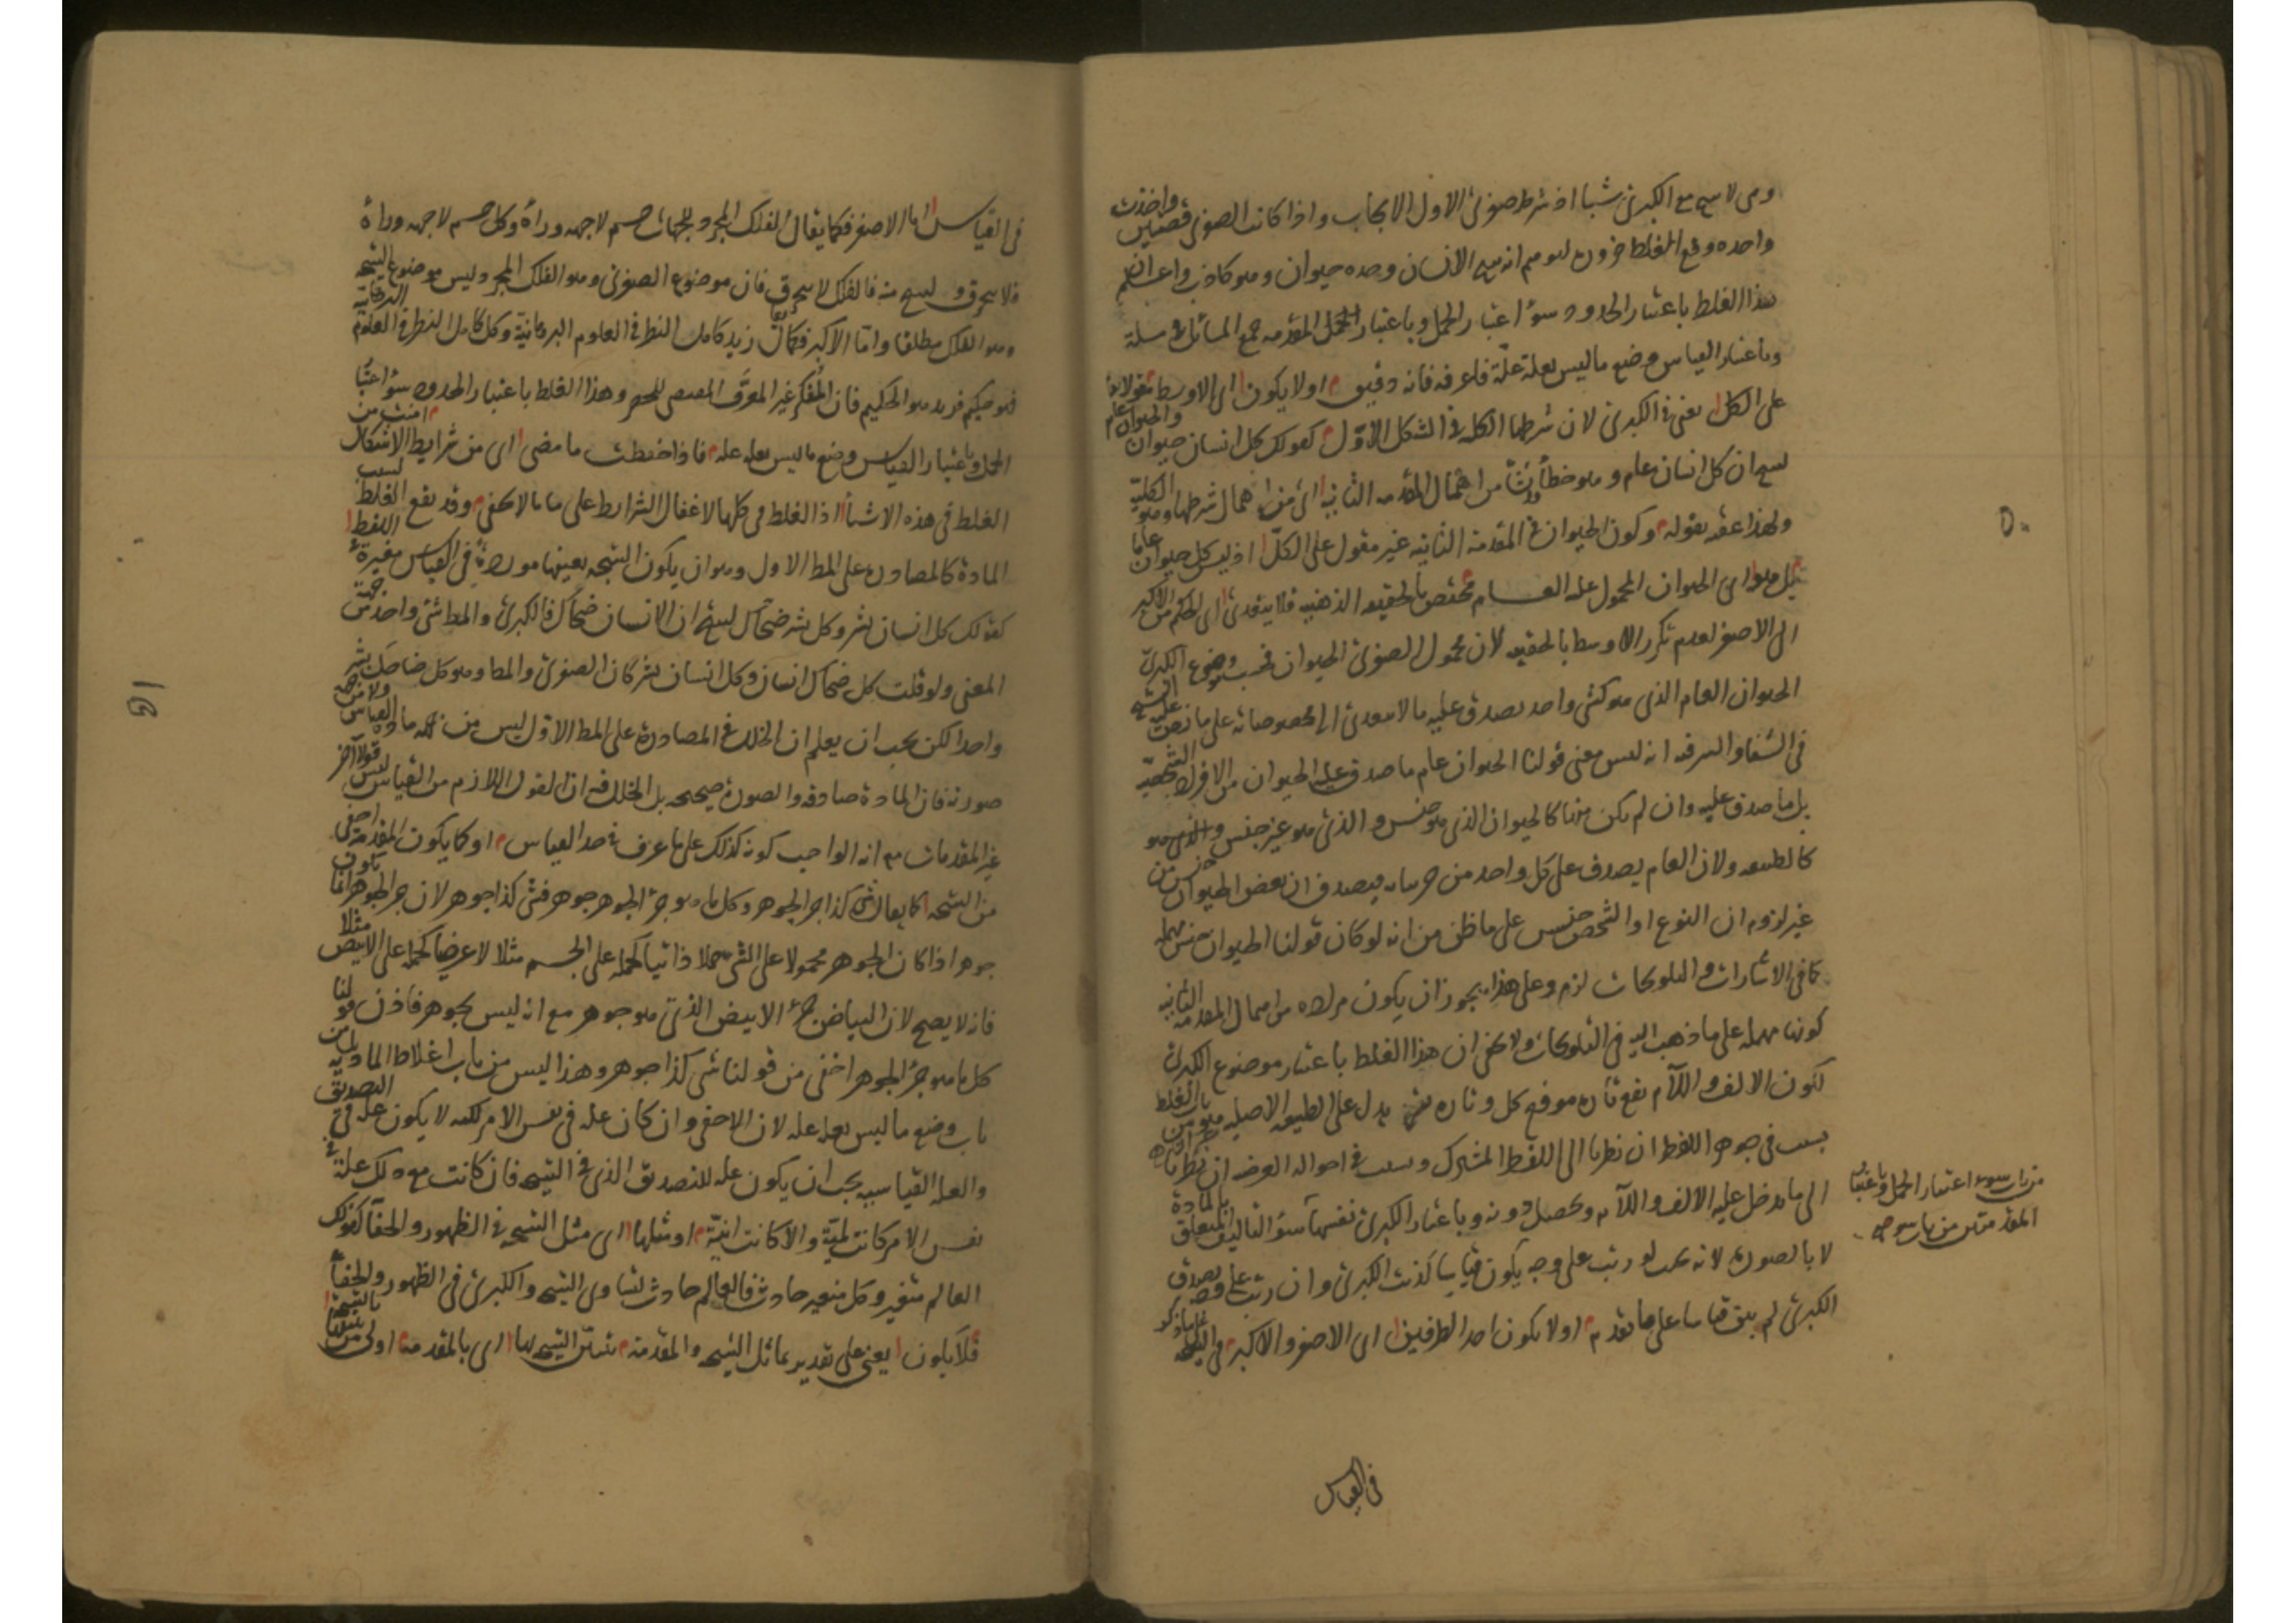 وهي لا تنتج مع الكبرى شيئا اذ شرط صغرى الاول الايجاب واذا كانت الصغرى قضيتين واخذت
واحدة وقع الغلط انه ينتج الانسان وحده حيوان وهو كاذب واعلم ان
هذا الغلط باعتبار الحدود سوء اعتبار الحمل وباعتبار المقدمة جمع المسائل في مسئلة
وباعتبار القياس وضع ما ليس بعلة علة فاعرفه فانه دقيق او لا يكون اى الاوسط مقولا
على الكل يعنى في الكبرى لان شرطها الكلية في الشكل الاول كقولك كل انسان حيوان والحيوان عام
ينتج ان كل انسان عام وهو خطأ نشأ من اهمال المقدمة الثانية اى من اهمال شرطها وهو الكلية
ولهذا عقبه بقوله وكون الحيوان في المقدمة الثانية غير مقول على الكل اذ ليس كل حيوان عاما
بل هو اى الحيوان المحمول عليه العام مختص بالحقيقة الذهنية فلا يتعدى اى الحكم من الاكبر
الى الاصغر لعدم تكرر الاوسط بالحقيقة لان محمول الصغرى الحيوان فحسب وموضوع الكبرى
الحيوان العام الذى هو كشى واحد يصدق عليه ما لا يتعدى الى مخصوصاته على ما نص عليه الشيخ
في الشفا والسر فيه انه ليس معنى قولنا الحيوان عام ما صدق عليه الحيوان من الافراد الشخصية
بل ما صدق عليه وان لم يكن منها كالحيوان الذى هو جنس والذى هو غير جنس والذى هو
كالطبيعة ولان العام يصدق على كل واحد من جزئياته فيصدق ان بعض الحيوان جنس من
غير لزوم ان النوع او الشخص جنس على ما ظن من انه لو كان قولنا الحيوان جنس مهملة
كما في الاشارات والتلويحات لزم وعلى هذا يجوز ان يكون مراده من اهمال المقدمة الثانية
كونها مهملة على ما ذهب اليه في التلويحات ولا يخفى ان هذا الغلط باعتبار موضوع الكبرى
لكون الالف واللام تقع تارة موقع كل وتارة يدل على الطبيعة الاصلية هو من باب الغلط
بسبب في جوهر اللفظ ان نظرنا الى اللفظ المشترك وبسبب في احواله العرضية ان نظرنا
الى ما يدخل عليه الالف واللام ويحصل دونه وباعتبار الكبرى نفسها سوء التاليف المتعلق بالمادة
لا بالصورة لانه بحيث لو رتب على وجه يكون قياسا كذبت الكبرى وان رتب على وجه تصدق
الكبرى لم يبق قياسا على ما تقدم او لا يكون احد الطرفين اى الاصغر والاكبر في النتيجة
من باب سوء اعتبار الحمل وباعتبار
المقدمتين من باب سوء
في القياس
٥٠
في القياس اما الاصغر فكما يقال الفلك المجرد للجهات جسم لا جهة وراءه وكل جسم لا جهة وراءه
فلا ينخرق وينتج منه فالفلك لا ينخرق فان موضوع الصغرى وهو الفلك المجرد ليس موضوع النتيجة
وهو الفلك مطلقا واما الاكبر فكما يقال زيد كامل النظر في العلوم البرهانية وكل كامل النظر في العلوم البرهانية
فهو حكيم فزيد هو الحكيم فان المنكر غير المعرف المقتضى للحصر وهذا الغلط باعتبار الحدود سوء اعتبار
الحمل وباعتبار القياس وضع ما ليس بعلة علة فاذا حفظت ما مضى اى من شرايط الاشكال امنت من
الغلط في هذه الاشياء اذ الغلط في كلها لاغفال الشرايط على ما لا يخفى وقد يقع الغلط بسبب
المادة كالمصادرة على المطلوب الاول وهو ان يكون النتيجة بعينها موردة في القياس مغيرة اللفظ
كقولك كل انسان بشر وكل بشر ضحاك ينتج ان الانسان ضحاك فالكبرى والمطلوب شئ واحد من جهة
المعنى ولو قلت كل ضحاك انسان وكل انسان بشر كان الصغرى والمطلوب وهو كل ضاحك بشر
واحدا لكن يجب ان يعلم ان الخلل في المصادرة على المطلوب الاول ليس من جهة مادة القياس ولا من جهة
صورته فان المادة صادقة والصورة صحيحة بل الخلل فيه ان القول اللازم من القياس ليس قولا آخر
غير المقدمات مع انه الواجب كونه كذلك على ما عرف في حد القياس او كما يكون المقدمة اخفى
من النتيجة كما يقال شئ كذا جزء الجوهر وكل ما هو جزء الجوهر جوهر فشئ كذا جوهر لان جزء الجوهر انما يكون
جوهرا اذا كان الجوهر محمولا على الشئ حملا ذاتيا كحمله على الجسم مثلا لا عرضيا كحمله على الابيض مثلا
فانه لا يصح لان البياض جزء الابيض الذى هو جوهر مع انه ليس بجوهر فاذن قولنا
كل ما هو جزء الجوهر اخفى من قولنا شئ كذا جوهر وهذا ليس من باب اغلاط المادية بل من
باب وضع ما ليس بعلة علة لان الاخفى وان كان علة في نفس الامر لكنه لا يكون علة في التصديق
والعلة القياسية يجب ان يكون علة للتصديق الذى في النتيجة فان كانت مع ذلك علة في
نفس الامر كانت لمية والا كانت انية او مثلها اى مثل النتيجة في الظهور والخفاء كقولك
العالم متغير وكل متغير حادث فالعالم حادث لتساوى النتيجة والكبرى في الظهور والخفاء
فلا يكون يعنى على تقدير تماثل النتيجة والمقدمة تبيين النتيجة بها اى بالمقدمة اولى من تبيينها بالنتيجة
٥١